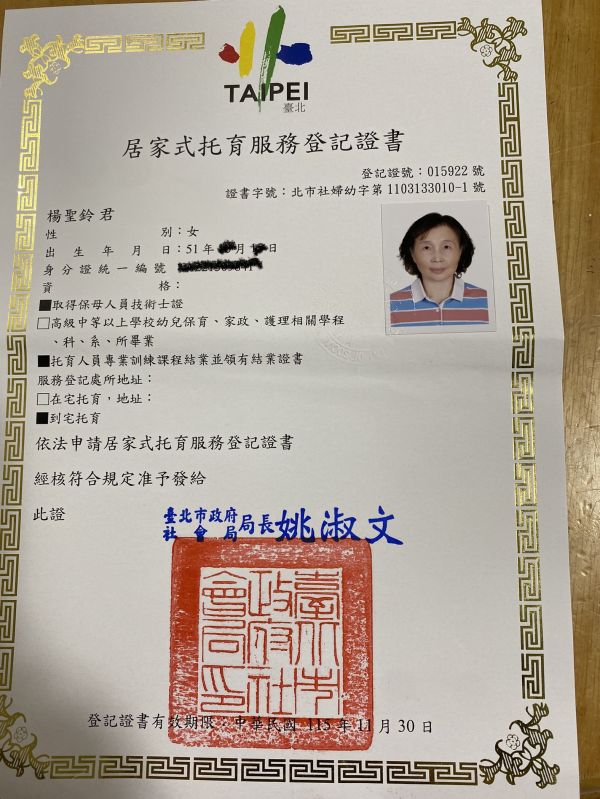 TAIPEI
臺北
居家式托育服務登記證書
登記證號：015922 號
證書字號：北市社婦幼字第 1103133010-1 號
楊聖鈴 君
性別：女
出生年月日：51 年 月 日
身分證統一編號
資格：
■取得保母人員技術士證
□高級中等以上學校幼兒保育、家政、護理相關學程
、科、系、所畢業
■托育人員專業訓練課程結業並領有結業證書
服務登記處所地址：
□在宅托育，地址：
■到宅托育
依法申請居家式托育服務登記證書
經核符合規定准予發給
此證
臺北市政府社會局局長 姚淑文
臺北市政府社會局印
登記證書有效期限：中華民國 115 年 11 月 30 日